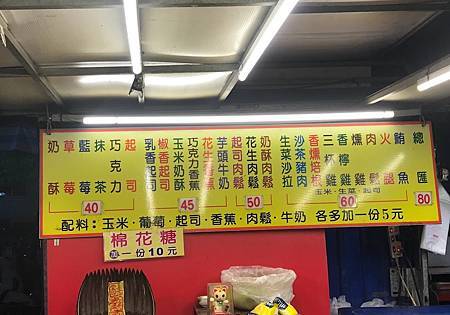 奶酥
草莓
藍莓
抹茶
巧克力
起司
40
乳香起司
椒香起司
玉米奶酥
巧克力香蕉
花生香蕉
45
芋頭牛奶
起司肉鬆
花生肉鬆
奶酥肉鬆
50
生菜沙拉
沙茶豬肉
香燻培根
三杯雞
香檸雞
燻雞
肉鬆
火腿
鮪魚
玉米·生菜·起司
60
總匯
80
配料：玉米·葡萄·起司·香蕉·肉鬆·牛奶 各多加一份5元
棉花糖
加一份10元